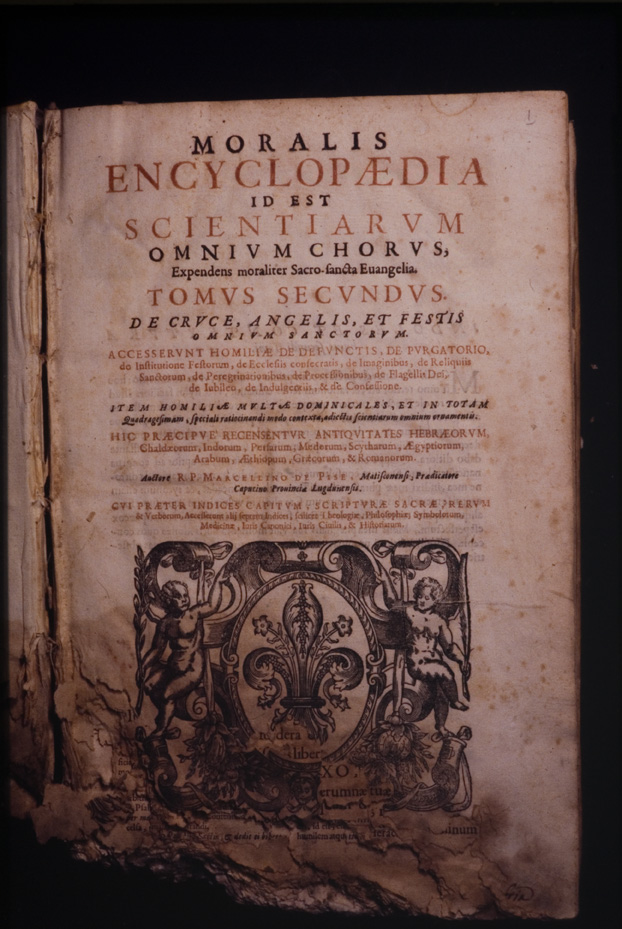 1
MORALIS
ENCYCLOPÆDIA
ID EST
SCIENTIARVM
OMNIVM CHORVS,
Expendens moraliter Sacro-sancta Euangelia.
TOMVS SECVNDVS.
DE CRVCE, ANGELIS, ET FESTIS
OMNIVM SANCTORVM.
ACCESSERVNT HOMILIÆ DE DEFVNCTIS, DE PVRGATORIO,
de Institutione Festorum, de Ecclesiis consecratis, de Imaginibus, de Reliquiis
Sanctorum, de Peregrinationibus, de Processionibus, de Flagellis Dei,
de Iubileo, de Indulgentiis, & de Confessione.
ITEM HOMILIÆ MVLTÆ DOMINICALES, ET IN TOTAM
Quadragesimam, speciali ratiocinandi modo contextæ, adiectis scientiarum omnium ornamentis.
HIC PRÆCIPVE RECENSENTVR ANTIQVITATES HEBRÆORVM,
Chaldæorum, Indorum, Persarum, Medorum, Scytharum, Ægyptiorum,
Arabum, Æthiopum, Græcorum, & Romanorum.
Auctore R. P. MARCELLINO DE PISE, Matisconensi, Prædicatore
Capucino Prouinciæ Lugdunensis.
CVI PRÆTER INDICES CAPITVM, SCRIPTVRÆ SACRÆ, RERVM
& Verborum, Accesserunt alij septem Indices, scilicet Theologiæ, Philosophiæ, Symbolorum,
Medicinæ, Iuris Canonici, Iuris Ciuilis, & Historiarum.
dera
liber
XO,
erumnæ tuæ